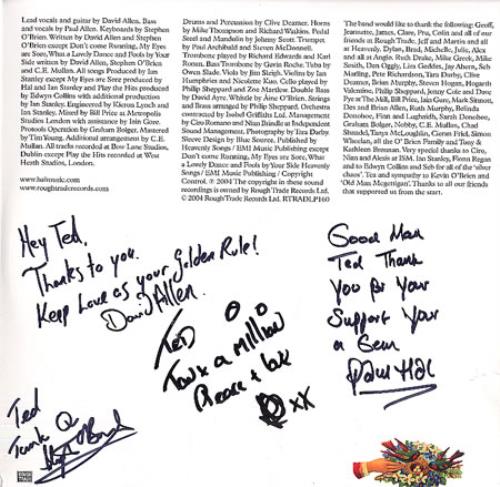 Lead vocals and guitar by David Allen. Bass
and vocals by Paul Allen. Keyboards by Stephen
O'Brien. Written by David Allen and Stephen
O'Brien except Don't come Running, My Eyes
are Sore, What a Lovely Dance and Fools by Your
Side written by David Allen, Stephen O'Brien
and C.E. Mullan. All songs Produced by Ian
Stanley except Play the Hits produced by
Hal and Ian Stanley and Play the Hits produced
by Edwyn Collins with additional production
by Ian Stanley. Engineered by Kieran Lynch and
Ian Stanley. Mixed by Bill Price at Metropolis
Studios London with assistance by Iain Gore.
Protools Operation by Graham Bolger. Mastered by
Tim Young. Additional Arranging by C.E.
Mullan. All tracks recorded at Bow Lane Studios,
Dublin except Play the Hits recorded at West
Heath Studios, London.
www.halmusic.com
www.roughtraderecords.com
Drums and Percussion by Clive Deamer. Horns
by Mike Thompson and Richard Watkins. Pedal
Steel and Mandolin by Johnny Scott. Trumpet
by Paul Archibald and Steven McDonnell.
Trombone played by Richard Edwards and Karl
Ronan. Bass Trombone by Gavin Roche. Tuba by
Owen Slade. Viola by Jim Sleigh. Violins by Ian
Humphries and Nicolette Kuo. Cello played by
Philip Sheppard and Zoe Martlew. Double Bass
by David Ayre. Whistle by Aine O'Brien. Strings
and Brass arranged by Philip Sheppard. Orchestra
contracted by Isobel Griffiths Ltd. Management
by Ciro Romano and Nian Brindle at Independent
Sound Management. Photography by Tara Darby.
Sleeve Design by Blue Source. Published by
Heavenly Songs / EMI Music Publishing except
Don't come Running, My Eyes are Sore, What
a Lovely Dance and Fools by Your Side Heavenly
Songs / EMI Music Publishing / Copyright
Control. ℗ 2004 The copyright in these sound
recordings is owned by Rough Trade Records Ltd.
© 2004 Rough Trade Records Ltd. RTRADLP160
The band would like to thank the following: Geoff,
Jeannette, James, Clare, Pru, Colin and all of our
friends at Rough Trade. Jeff and Martin and all
at Heavenly. Dylan, Brad, Michelle, Julie, Alex
and all at Anglo. Ruth Drake, Mike Greek, Mike
Smith, Den Oggly, Lira Geddes, Jay Ahern, Seb
Marling, Pete Richardson, Tara Darby, Clive
Deamer, Brian Murphy, Steven Hogan, Hogarth
Valentine, Philip Sheppard, Jenny Cole and Dave
Pye at The Mill, Bill Price, Iain Gore, Mark Sinnott,
Des and Brian Allen, Ruth Murphy, Belinda
Donohoe, Finn and Lughaidh, Sarah Donohoe,
Graham Bolger, Nobby, C.E. Mullan, Brad Chas
Shandel, Tanya McLoughlin, Goren Frid, Simon
Wheelan, all the O'Brien Family and Tony &
Kathleen Brennan. Very special thanks to Ciro,
Nian and Alexis at ISM. Ian Stanley, Fiona Regan
and to Edwyn Collins and Seb for all of the 'silver
chaos'. Tea and sympathy to Kevin O'Brien and
'Old Man Megettigan'. Thanks to all our friends
that supported us from the start.
Hey Ted,
Thanks to you.
Keep Love as your Golden Rule!
David Allen.
TED
Tanx a million
Peace + luv
xx
Good Man
Ted Thank
You for Your
Support Your
a Gem
Paul Hal
Ted
Tank Q
ROUGH TRADE